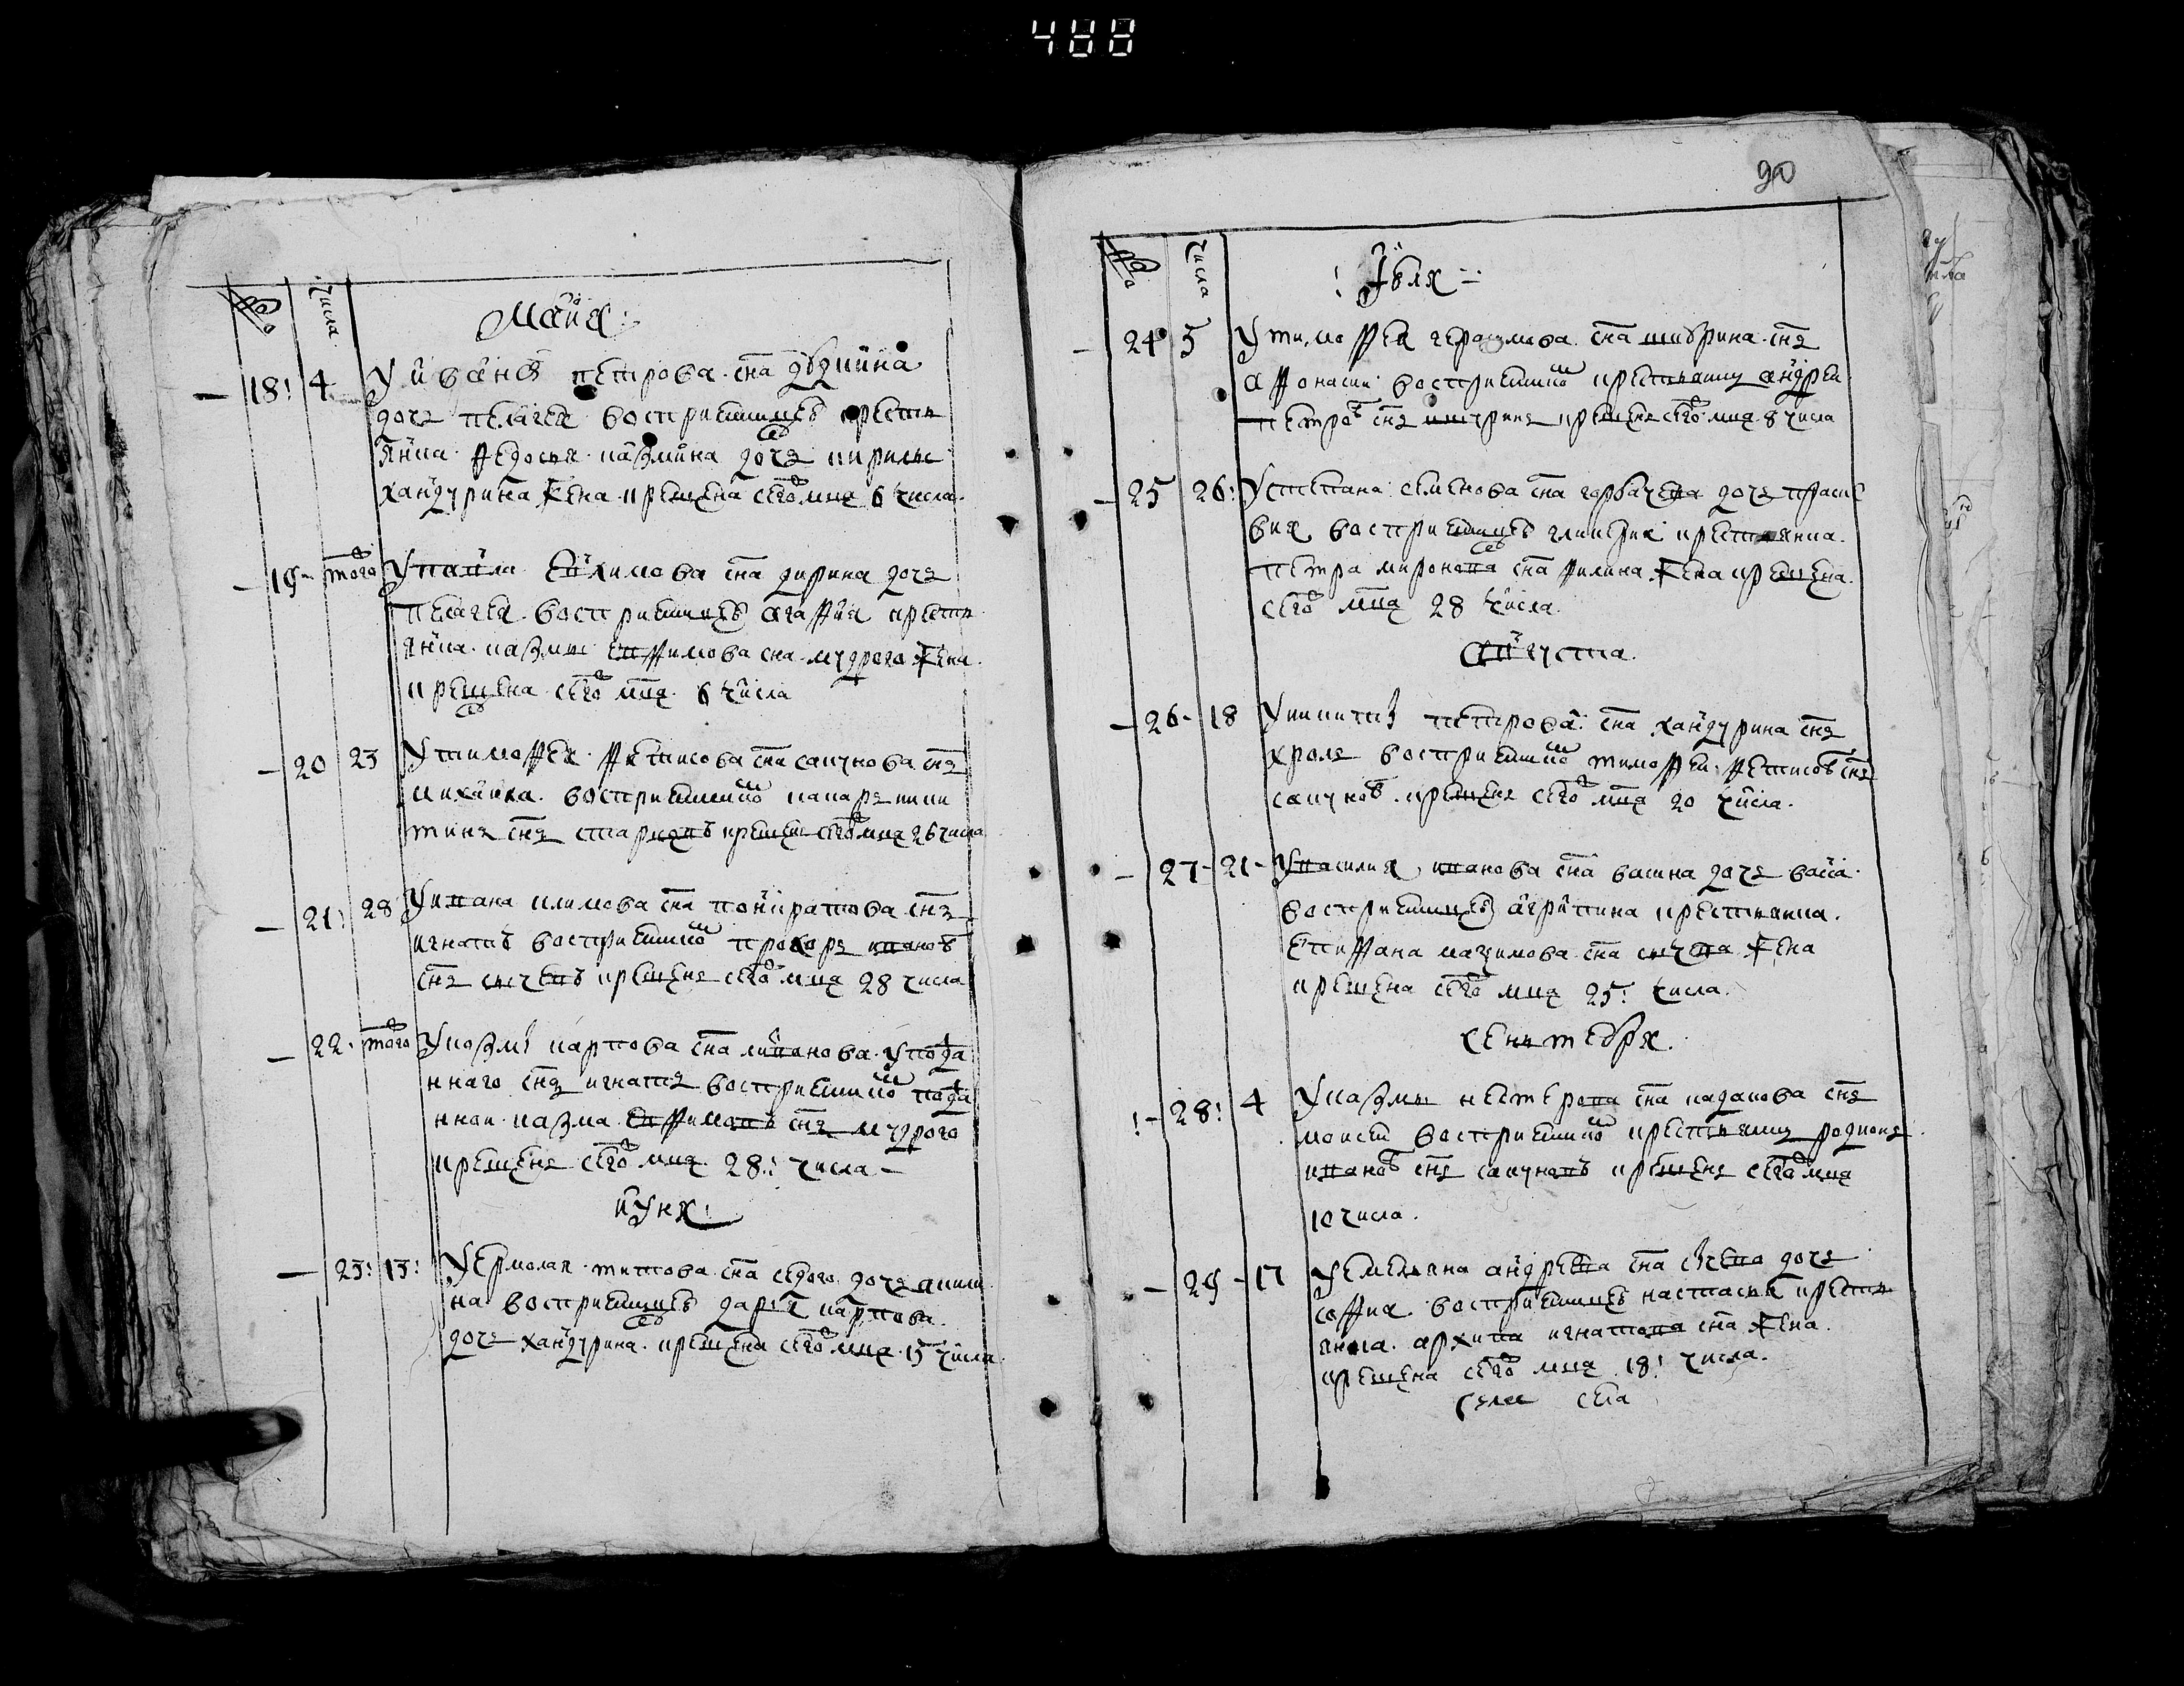 488
№ Числа
Маия:
18: 4 У ивана петрова сна
дочь пелагея восприемница кресть
янка федосья казмина дочь кирилы
хандурина жена крещена сего мца 6 числа
19 того У павла екимова сна дирина дочь
пелагея восприемница агафия кресть
янка казмы ефимова сна мудрого жена
крещена сего мца 6 числа
20 23 У тимофея фетисова сна сапунова снъ
михаила восприемник
снъ крещенъ сего мца 26 числа
21: 28 У ивана климова сна понкратова снъ
игнатъ восприемникъ прохоръ ивановъ
снъ сычевъ крещенъ сего мца 28 числа
22. того У казмы карпова сна ливанова у подда
нного снъ игнатъ восприемникъ подда
нной казма ефимовъ снъ мудрого
крещенъ сего мца 28: числа
иуня:
23: 13: У ермолая титова сна седого дочь акили
на восприемница дарья карпова
дочь хандурина крещена сего мца 15 числа
90
№ Числа
Июля
24 5 У тимофея герасимова сна шибрина снъ
афонасии восприемникъ крестьянинъ андреи
петровъ снъ крещенъ сего мца 8 числа
25 26: У степана семенова сна горбачева дочь праско
вия восприемница гликерия крестьянка
петра миронова сна филина жена крещена
сего мца 28 числа
августа
26 18 У никиты петрова сна хандурина снъ
фролъ восприемникъ тимофеи фетисовъ снъ
сапуновъ крещенъ сего мца 20 числа
27 21 У василия иванова сна васина дочь васса
восприемница агрипина крестьянка
епифана мазимова сна сычева жена
крещена сего мца 25: числа
сентебря
28: 4 У казмы нестерова сна кадакова снъ
моисеи восприемникъ крестьянинъ родионъ
ивановъ снъ сапуновъ крещенъ сего мца
10 числа
29 17 У емельяна андреева сна сычева дочь
софия восприемница настасья кресть
янка архипа игнатова сна жена
крещена сего мца 18: числа
села